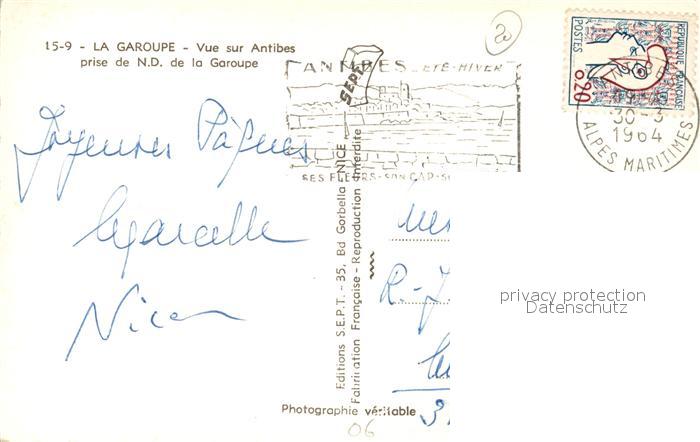 15-9 - LA GAROUPE - Vue sur Antibes
prise de N.D. de la Garoupe
20
ANTIBES ÉTÉ-HIVER
SES FLEURS-SON CAP-S
SEPT
POSTES
RÉPUBLIQUE FRANÇAISE
0,20
30-3
1964
ALPES MARITIMES
Joyeuses Pâques
Nice
Editions S.E.P.T. - 35, Bd Gorbella NICE
Fabrication Française - Reproduction interdite
R.
privacy protection
Datenschutz
Photographie véritable
3
06